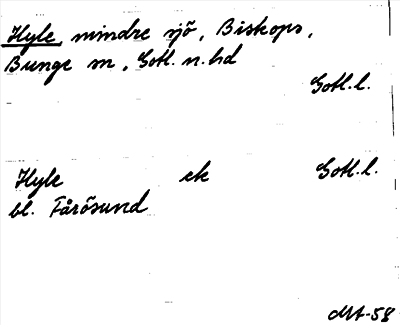 Hyle mindre sjö, Biskops,
Bunge sn, Gotl. n. hd
Gotl. l.
Hyle ek Gotl. l.
bl. Fårösund
58